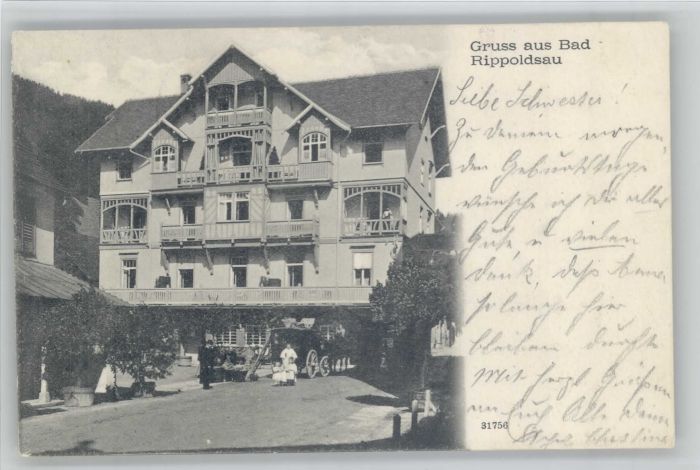 Gruss aus Bad
Rippoldsau
Liebe Schwester!
Zu deinem morgen,
den Geburtstage
wünsche ich Dir alles
Gute u vielen
Dank, daß
so lange hier
bleiben durfte
Mit herzl Grüßen
an Euch Alle Deine
31756